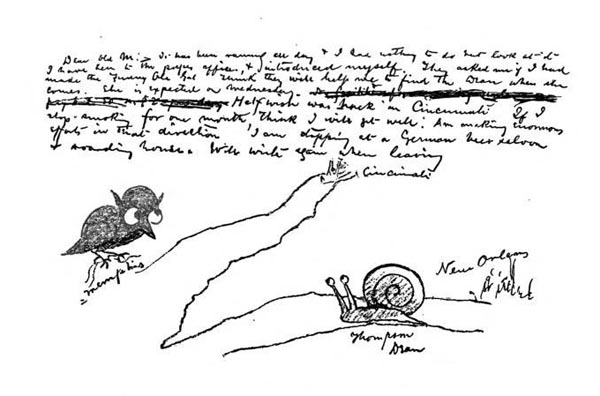 Dear Old Man: It has been raining all day & I had nothing to do but look at it
I have been to the papers offices, & introduced myself. They asked me if I had
made the Funny Old Gal I think they will help me to find the Dean when she
comes. She is expected on Wednesday.
Half wish was back in Cincinnati If I
stop smoking for one month, think I will get well. Am making enormous
efforts in that direction I am stopping at a German beer saloon
& boarding house. Will write again when leaving
Cincinnati
Memphis
New Orleans
Thompson
Dean